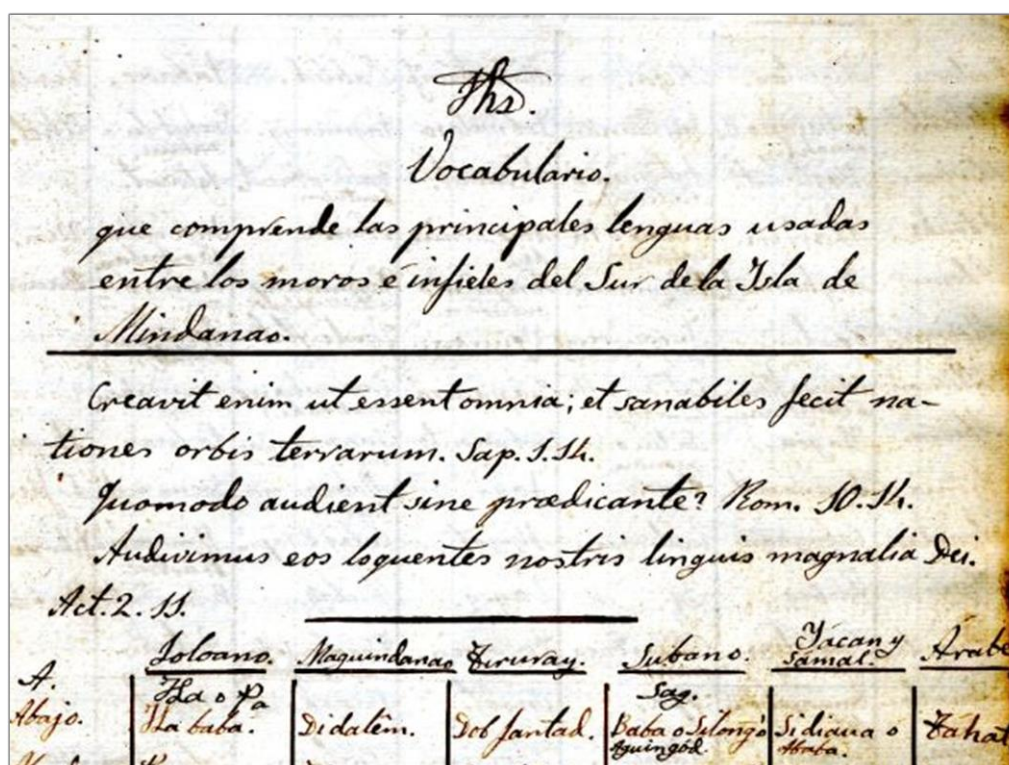 Jhs.
Vocabulario.
que comprende las principales lenguas usadas
entre los moros é infieles del Sur de la Isla de
Mindanao.
Creavit enim ut essent omnia; et sanabiles fecit na-
tiones orbis terrarum. Sap. 1.14.
Quomodo audient sine prædicante? Rom. 10.14.
Audivimus eos loquentes nostris linguis magnalia Dei.
Act. 2. 11.
Joloano. Maguindanao Tiruray. Subano. Yacan y Sámal. Árabe
A.
Abajo. Ha o Pa Ha baba. Didalêm. Dob fantad. Sag. Baba o Silongó Sidiaua o Tahat